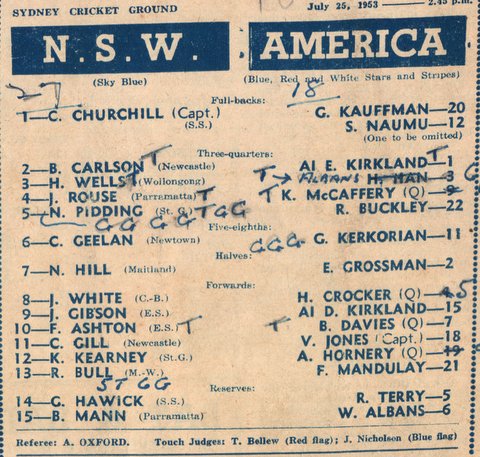 SYDNEY CRICKET GROUND July 25, 1953 — 2.45 p.m.
N.S.W. AMERICA
(Sky Blue) (Blue, Red and White Stars and Stripes)
27 18
Full-backs:
1—C. CHURCHILL (Capt.) G. KAUFFMAN—20
(S.S.) S. NAUMU—12
(One to be omitted)
Three-quarters:
2—B. CARLSON (Newcastle) T Al E. KIRKLAND T—1
3—H. WELLS T (Wollongong) T → ALBANS H. HAN—3 G
4—J. ROUSE (Parramatta) T T K. McCAFFERY (Q)—9
5—N. PIDDING (St. G.) T GG R. BUCKLEY—22
GG GG GG
Five-eighths:
6—C. GEELAN (Newtown) GGG G. KERKORIAN—11
Halves:
7—N. HILL (Maitland) E. GROSSMAN—2
Forwards:
8—J. WHITE (C.-B.) H. CROCKER (Q)—5
9—J. GIBSON (E.S.) Al D. KIRKLAND—15
10—F. ASHTON (E.S.) T T B. DAVIES (Q)—7
11—C. GILL (Newcastle) V. JONES (Capt.)—18
12—K. KEARNEY (St.G.) A. HORNERY (Q)—19
13—R. BULL (M.-W.) F. MANDULAY—21
5T GG
Reserves:
14—G. HAWICK (S.S.) R. TERRY—5
15—B. MANN (Parramatta) W. ALBANS—6
Referee: A. OXFORD. Touch Judges: T. Bellew (Red flag); J. Nicholson (Blue flag)